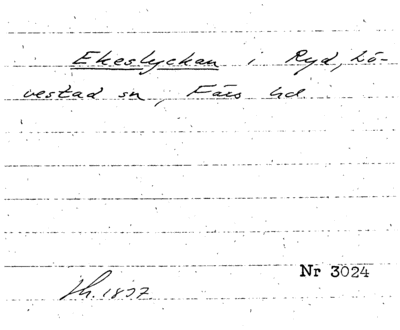 Ekeslyckan i Ryd, Lö-
vestad sn, Färs hd.
Nr 3024
Lh. 1837